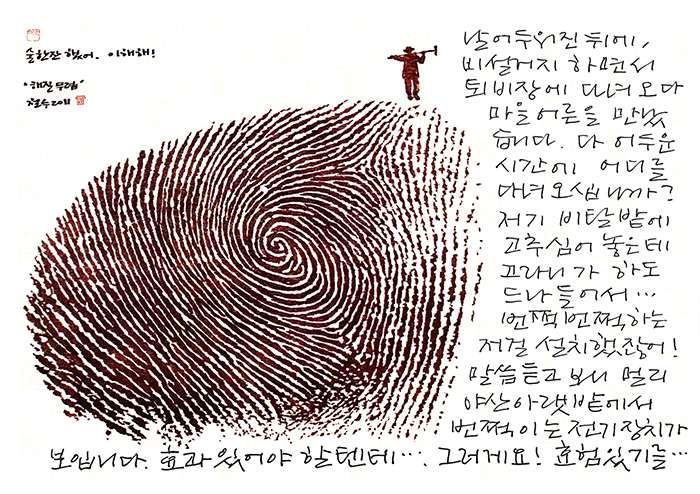 술 한잔 했어. 이해해!
"해질 무렵"
철수 2011
날 어두워진 뒤에,
비설거지 하면서
퇴비장에 다녀 오다
마을 어른을 만났
습니다. 다 어두운
시간에 어디를
다녀오십니까?
저기 비탈밭에
고추심어 놓은데
고라니가 하도
드나들어서…
번쩍번쩍하는
저걸 설치했잖어!
말씀 듣고 보니 멀리
야산아랫밭에서
번쩍이는 전기장치가
보입니다. 효과있어야 할텐데…. 그러게요! 효험있기를…